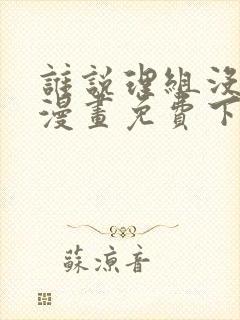 誰說理組沒
漫畫免費下
蘇涼音